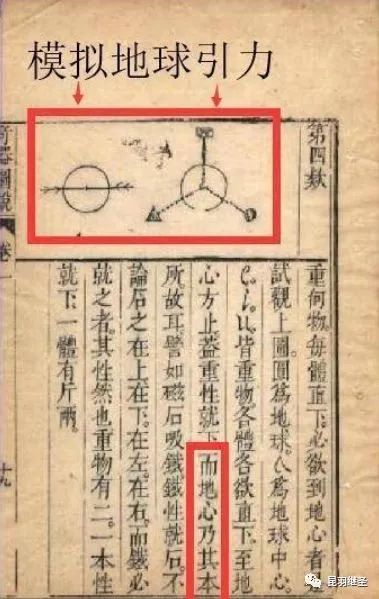 模拟地球引力
第四款
重何物每體直下必欲到地心者
試觀上圖圓為地球人為地球中心
皆重物各體各欲直下至地
心方止蓋重性就下而地心乃其本
所故耳譬如磁石吸鐵鐵性就石不
論石之在上在下在左在右而鐵必
就之者其性然也重物有二一本性
就下一體有斤兩
奇器圖說
卷一
十九
昆羽继圣